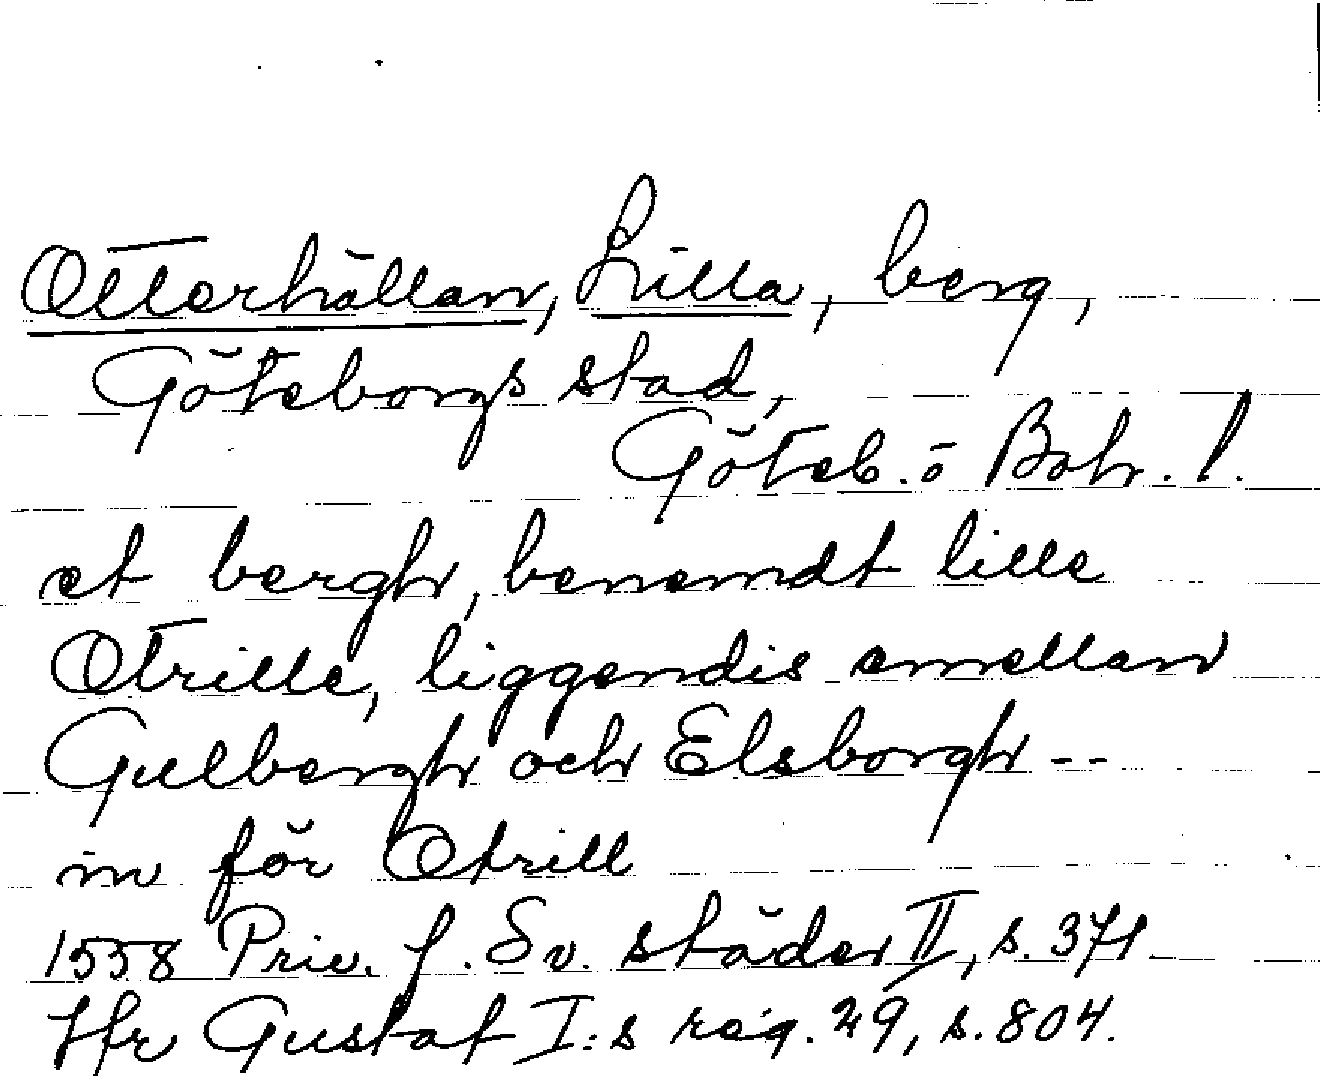 Otterhällan, Lilla, berg,
Göteborgs stad,
Göteb. o Boh. l.
et bergh, benemdt lille
Otrille, liggendis emellan
Gulbergh och Elsborgh --
in för Otrill
1558 Priv. f. Sv. städer II, s. 371
Jfr Gustaf I:s reg. 29, s. 804.